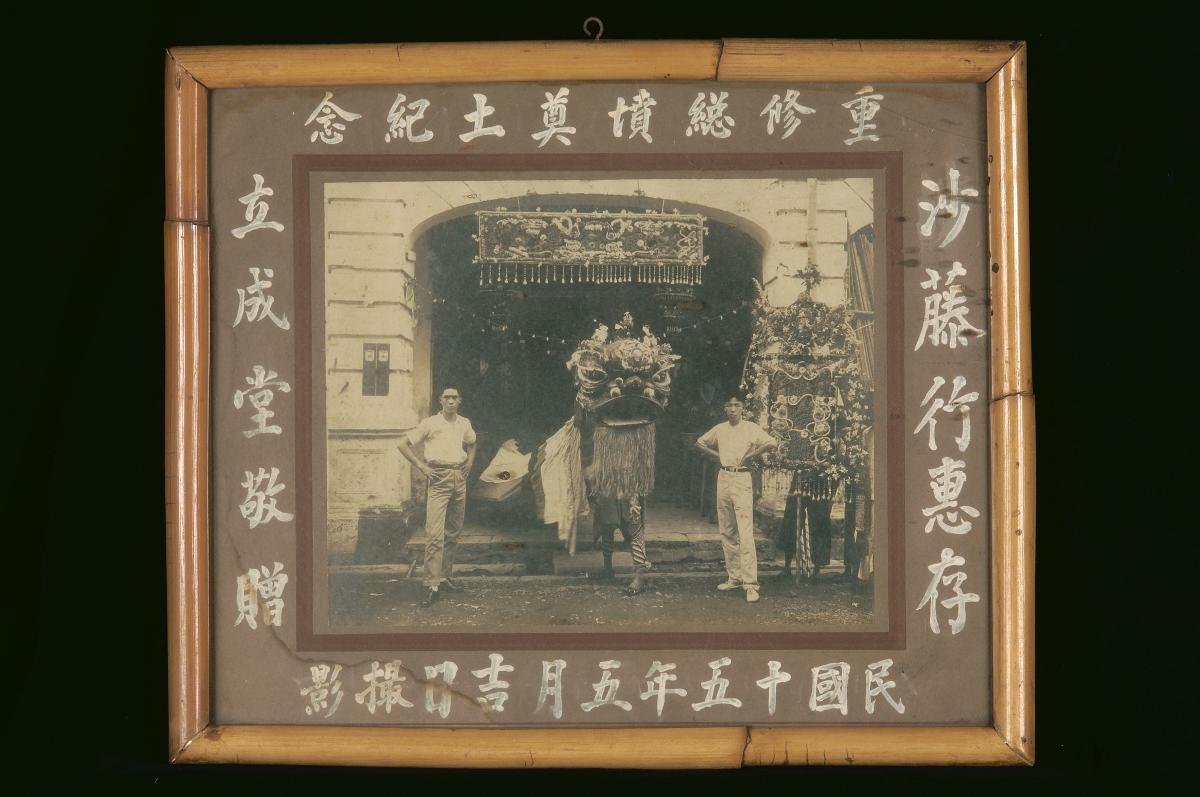 重修總墳奠土紀念
沙藤行惠存
立成堂敬贈
民國十五年五月吉日撮影